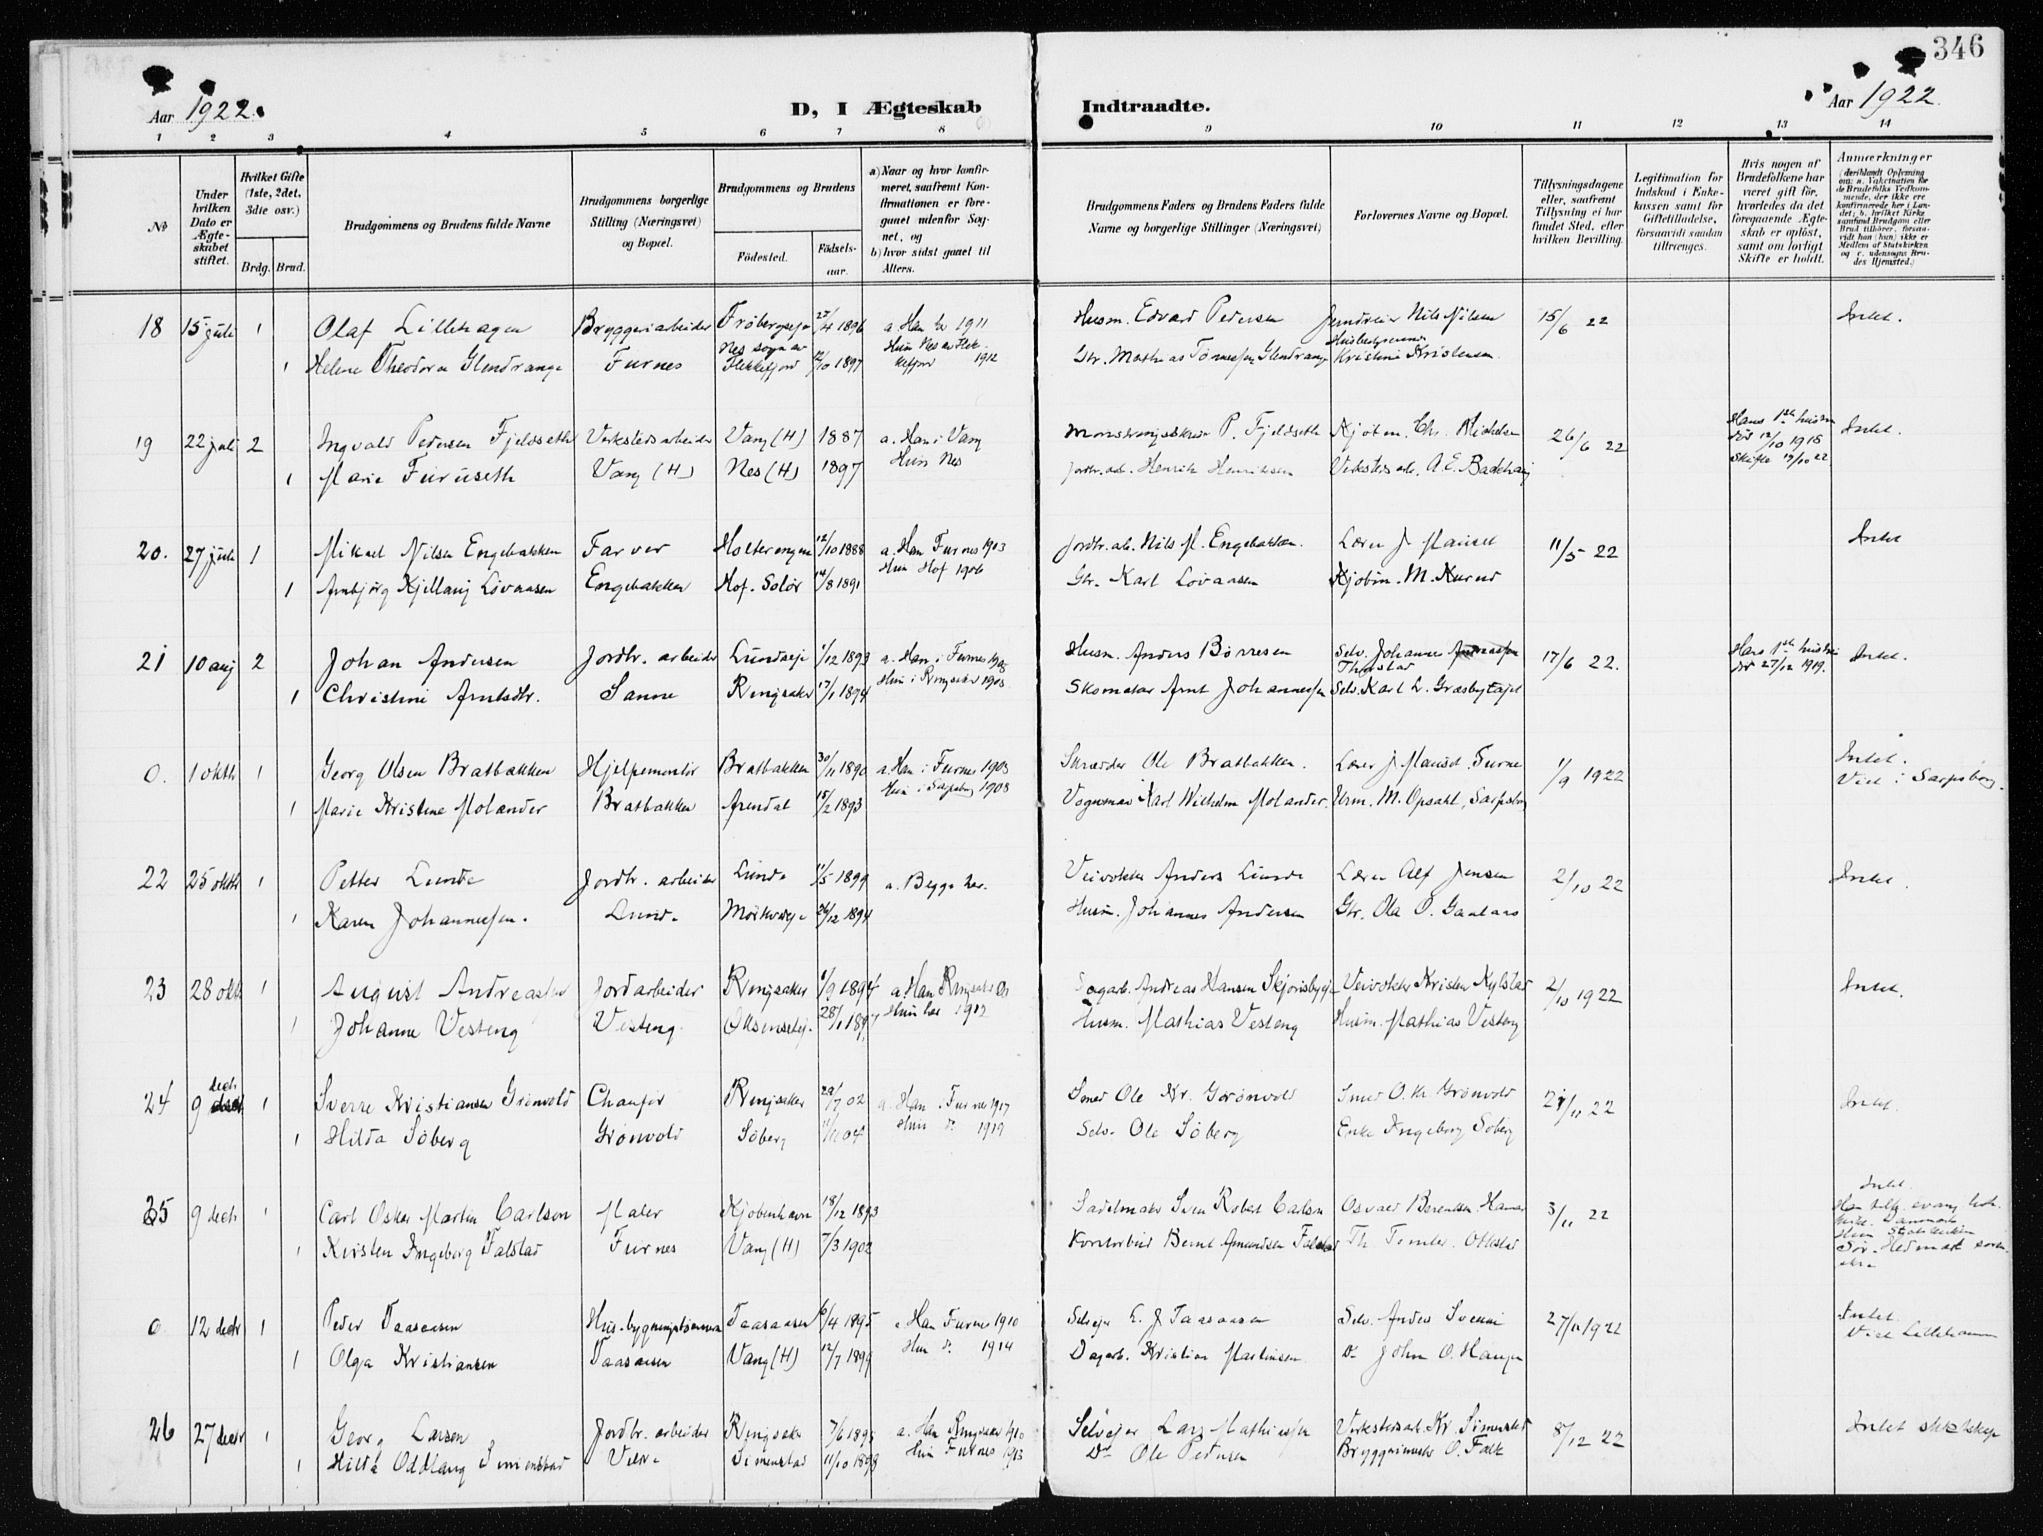 346
Aar 1922.
D, I Ægteskab Indtraadte.
Aar 1922.
1 2 3 4 5 6 7 8 9 10 11 12 13 14
№
Under hvilken Dato er Ægteskabet stiftet.
Hvilket Gifte (1ste, 2det, 3die osv.)
Brdg. Brud.
Brudgommens og Brudens fulde Navne
Brudgommens borgerlige Stilling (Næringsvei) og Bopæl.
Brudgommens og Brudens
Fødested. Fødselsaar.
a) Naar og hvor konfirmeret, saafremt Konfirmationen er foregaaet udenfor Sognet, og b) hvor sidst gaaet til Alters.
Brudgommens Faders og Brudens Faders fulde Navne og borgerlige Stillinger (Næringsvei)
Forlovernes Navne og Bopæl.
Tillysningsdagene eller, saafremt Tillysning ei har fundet Sted, efter hvilken Bevilling.
Legitimation for Indskud i Enkekassen samt for Giftetilladelse, forsaavidt saadan tiltrænges.
Hvis nogen af Brudefolkene har været gift før, hvorledes da det foregaaende Ægteskab er opløst, samt om lovligt Skifte er holdt.
Anmærkninger
18 15 juli 1 Olaf Lillehagen Bryggeriarbeider 1896 a. Han 1911 Husm. Edvard Pedersen Nils Nilsen 15/6 22 Intet.
1 Helene Theodora Glendrange Furnes Nes sogn av Flekkefjord 12/10 1897 Hun Nes av Flekkefjord 1912 Gbr. Mathias Tønnesen Glendrange Kristine Kristensen
19 22 juli 2 Ingvald Pedersen Fjeldseth Verkstedsarbeider Vang (H) 1887 a. Han i Vang P. Fjeldseth Kjøbm. Chr. Michelsen 26/6 22 Hans 1ste hustru død 12/10 1918 Skifte 19/10 22 Intet.
1 Marie Furuseth Vang (H) Nes (H) 1897 Hun Nes Jordbr. arb. Henrik Henriksen Verksteds arb. A. E. Bakkhaug
20. 27 juli 1 Mikael Nilsen Engebakken Farver Holterengen 12/10 1888 a. Han Furnes 1903 Jordbr. arb. Nils M. Engebakken. Lærer J. Mauset 11/5 22 Intet
1 Arnbjørg Kjellaug Løvaasen Engebakken Hof. Solør 14/8 1891 Hun Hof 1906 Gbr. Karl Løvaasen Kjøbm. M. Kurud
21 10 aug 2 Johan Andersen Jordbr. arbeider Lundseie 1/12 1893 a. Han i Furnes 1908 Husm. Anders Børresen Selv. Johannes Thorstad 17/6 22. Hans 1ste hustru død 27/12 1919. Intet.
1 Christine Arntsdtr. Sanne Ringsaker 17/1 1894 Hun i Ringsaker 1908 Skomaker Arnt Johannessen Selv. Karl L. Græsbygtajet
0. 1 oktb 1 Georg Olsen Bratbakken Hjelpemontør Bratbakken 30/11 1890 a. Han i Furnes 1905 Skrædder Ole Bratbakken. Lærer J. Mauset, Furnes 1/9 1922 Intet. Viet i Sarpsborg.
1 Marie Kristine Molander Bratbakken Arendal 15/2 1893 Hun i Sarpsborg 1908 Vognmand Karl Wilhelm Molander. Urm. M. Opsahl, Sarpsborg
22 25 oktb 1 Petter Lunde Jordbr. arbeider Lunde 11/5 1899 a. Begge her. Veivokter Anders Lunde Lærer Alf Jensen 2/10 22 Intet.
1 Karen Johannessen. Lunde 26/12 1894 Husm. Johannes Andersen Gbr. Ola O. Gaalaas
23 28 oktb 1 August Andreassen Jordarbeider Ringsaker 1/9 1894 a. Han Ringsaker Dagarb. Andreas Hansen Skjørisbyeje Veivokter Kristen Kylstad 2/10 1922 Intet.
1 Johanne Vesteng Vesteng. 28/1 1897 Hun her 1912 Husm. Mathias Vesteng Husm. Mathias Vesteng
24 9 decb. 1 Sverre Kristiansen Grønvold Chaufør Ringsaker 29/7 02 a. Han i Furnes 1917 Smed Ole Kr. Grønvold Smed O. Kr. Grønvold 21/11 22 Intet.
1 Hilda Søberg Grønvold Søberg 04 Hun Do 1919 Selv. Ole Søberg Enke Ingeborg Søberg
25 9 decb. 1 Carl Oskar Martin Carlson Maler Kjøbenhavn 18/12 1893 Sadelmaker Sven Robert Carlson Osvald Berendsen Hamar 3/11 22 Intet. Han tilh. evang. luth. kirke. Danmark Hun Statskirken Sør-Hedmark
1 Kirsten Ingeborg Falstad Furnes Vang (H) 7/3 1902 Kontorbud Bernt Amundsen Falstad Th. Temler. Ottestad
0 12 decb 1 Peder Taasaasen Hus-bygningstømmerm Taasaasen 6/4 1895 a Han Furnes 1910 Selveier L. J. Taasaasen Selv. Anders Sveum 27/11 1922 Intet. Viet Lillehammer
1 Olga Kristiansen Taasaasen Vang (H) 12/7 1899 Hun Do 1914 Dagarb. Kristian Martinsen. Do John O. Haugen
26 27 decbr 1 Georg Larsen Jordbr. arbeider Ringsaker 7/6 1895 a. Han Ringsaker 1910 Selveier Lars Mathiesen Verkstedsarb. Kr. Simenstad 8/12 22 Intet slektskap
1 Hilda Oddlaug Simenstad Simenstad 11/10 1898 Hun Furnes 1913 Do Ole Pedersen Bryggerimester O. Falk